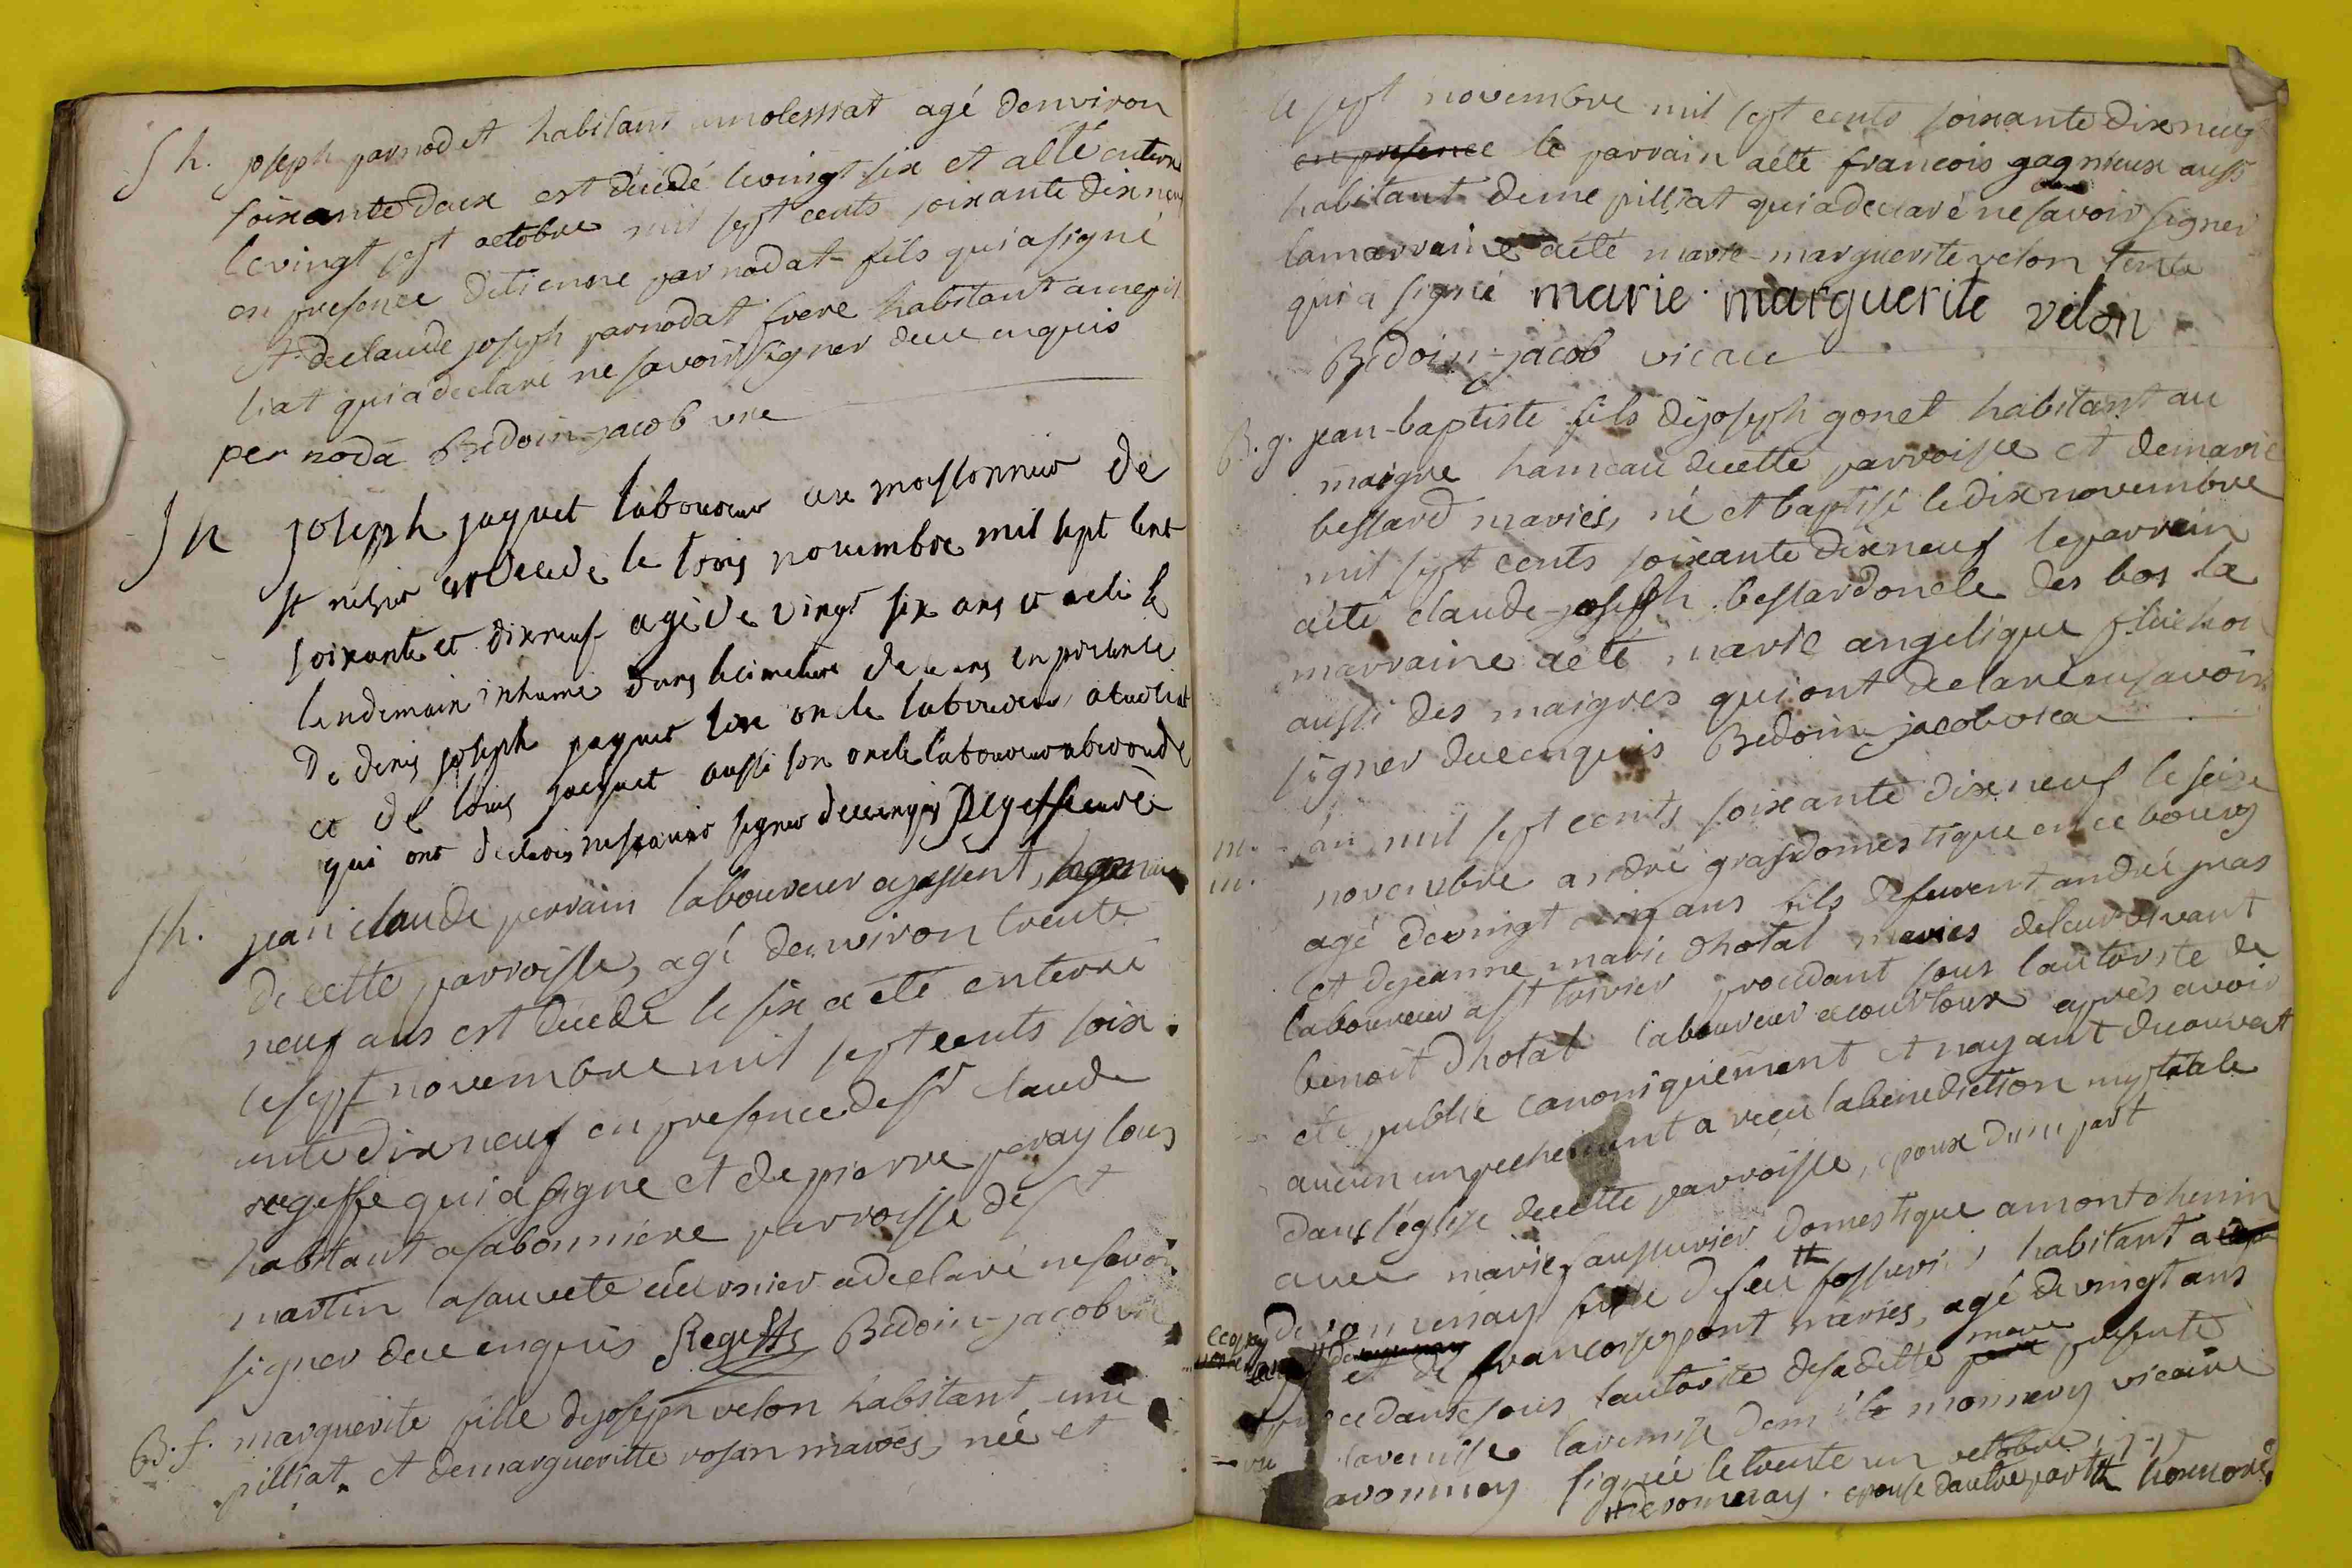 S h. joseph parnodet habitant amolessiat agé denviron
soixante deux est décédé le vingt six et aété enterré
le vingt sept octobre mil sept cents soixante dix neuf
en presence detienne parnodat fils qui a signé
et declaude joseph parnodat frere habitant amepil
liat qui a declaré ne savoir signer dece enquis
per noda Bedoin-jacob vre
S h joseph jaquet laboureur
decede le trois novembre mil sept cent
soixante et dix neuf agé de vingt six ans et a eté le
lendemain inhumé dans le cimetiere de ceans en presence
de denis joseph jaquet son oncle laboureur
et de louis jacquet aussi son oncle laboureur
qui ont declarés ne scavoir signer de ce enquis
S h. jean claude perrain laboureur
de cette parroisse, agé denviron trente
neuf ans est décédé le six a été enterré
le sept novembre mil sept cents soix
ante dix neuf en presence de sr claude
regeffe qui a signé et de pierre peray tous
habitant a sabonniére parroisse de st
martin ce dernier a declaré ne savoir
signer dece enquis Regeffe Bedoin-jacob vre
B. f. marguerite fille de joseph velon habitant ume
pilliat et de margueritte rosan mariés, née et
le sept novembre mil sept cents soixante dix neuf
en presence le parrain aété francois gagnieux aussi
habitant deme pilliat qui a declaré ne savoir signer
la marraine aété marie-marguerite velon tente
qui a signé marie marguerite velon
Bedoin-jacob vicaire
B. g. jean-baptiste fils de joseph gonet habitant au
maigre hameau de cette parroisse et de marie
bessard mariés, né et baptisé le dix novembre
mil sept cents soixante dix neuf le parrain
aété claude-joseph bessard oncle des bos la
marraine aété marie angelique
aussi des maigres qui ont declaré ne savoir
signer dece enquis Bedoin jacob vicaire
m. lan mil sept cents soixante dix neuf le seize
m. novembre andré gras domestique en ce bourg
agé de vingt cinq ans fils de andré gras
et de jeanne marie dhotal mariés de leur vivant
laboureur a st trivier procedant sous lautorité de
benoit dhotal laboureur a courtoux après avoir
été publié canoniquement et nayant decouvert
aucun empechement a reçu la benediction nuptiale
dans léglise de cette parroisse, epoux dune part
avec marie saussurier domestique a montchenin
fille de feu habitant a
et de francoise pont mariés, agé de vingt ans
procedante sous lautorité de sa ditte mere presente
la remise de mr monnery vicaire
a romenay signée le trente un octobre
de romenay. epouse dautre part